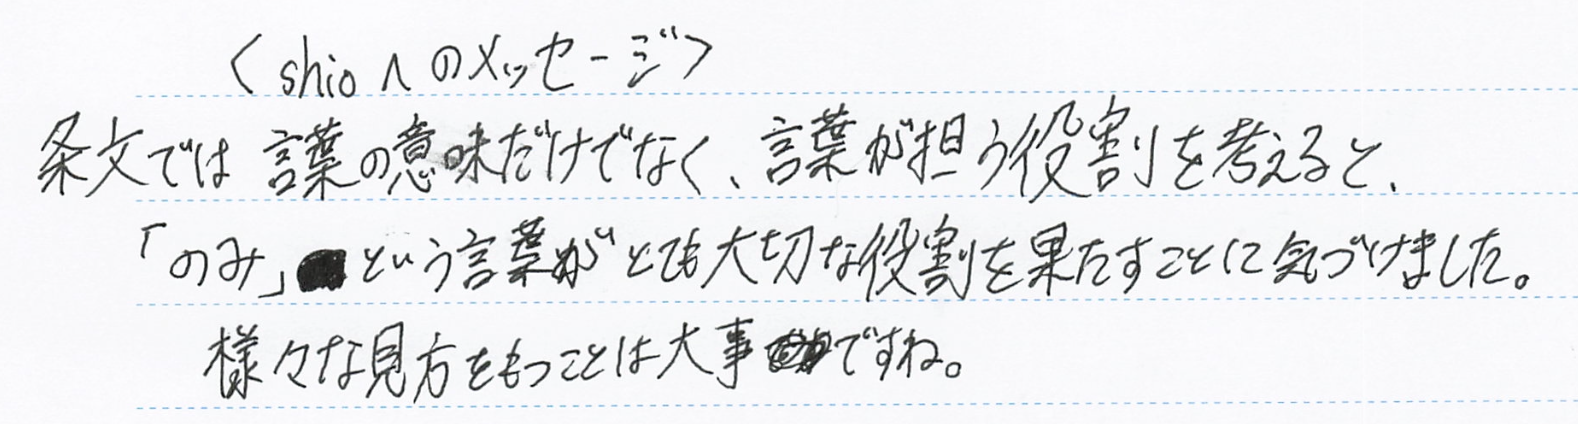 〈shioへのメッセージ〉
条文では言葉の意味だけでなく、言葉が担う役割を考えると、
「のみ」という言葉がとても大切な役割を果たすことに気づけました。
様々な見方をもつことは大事ですね。